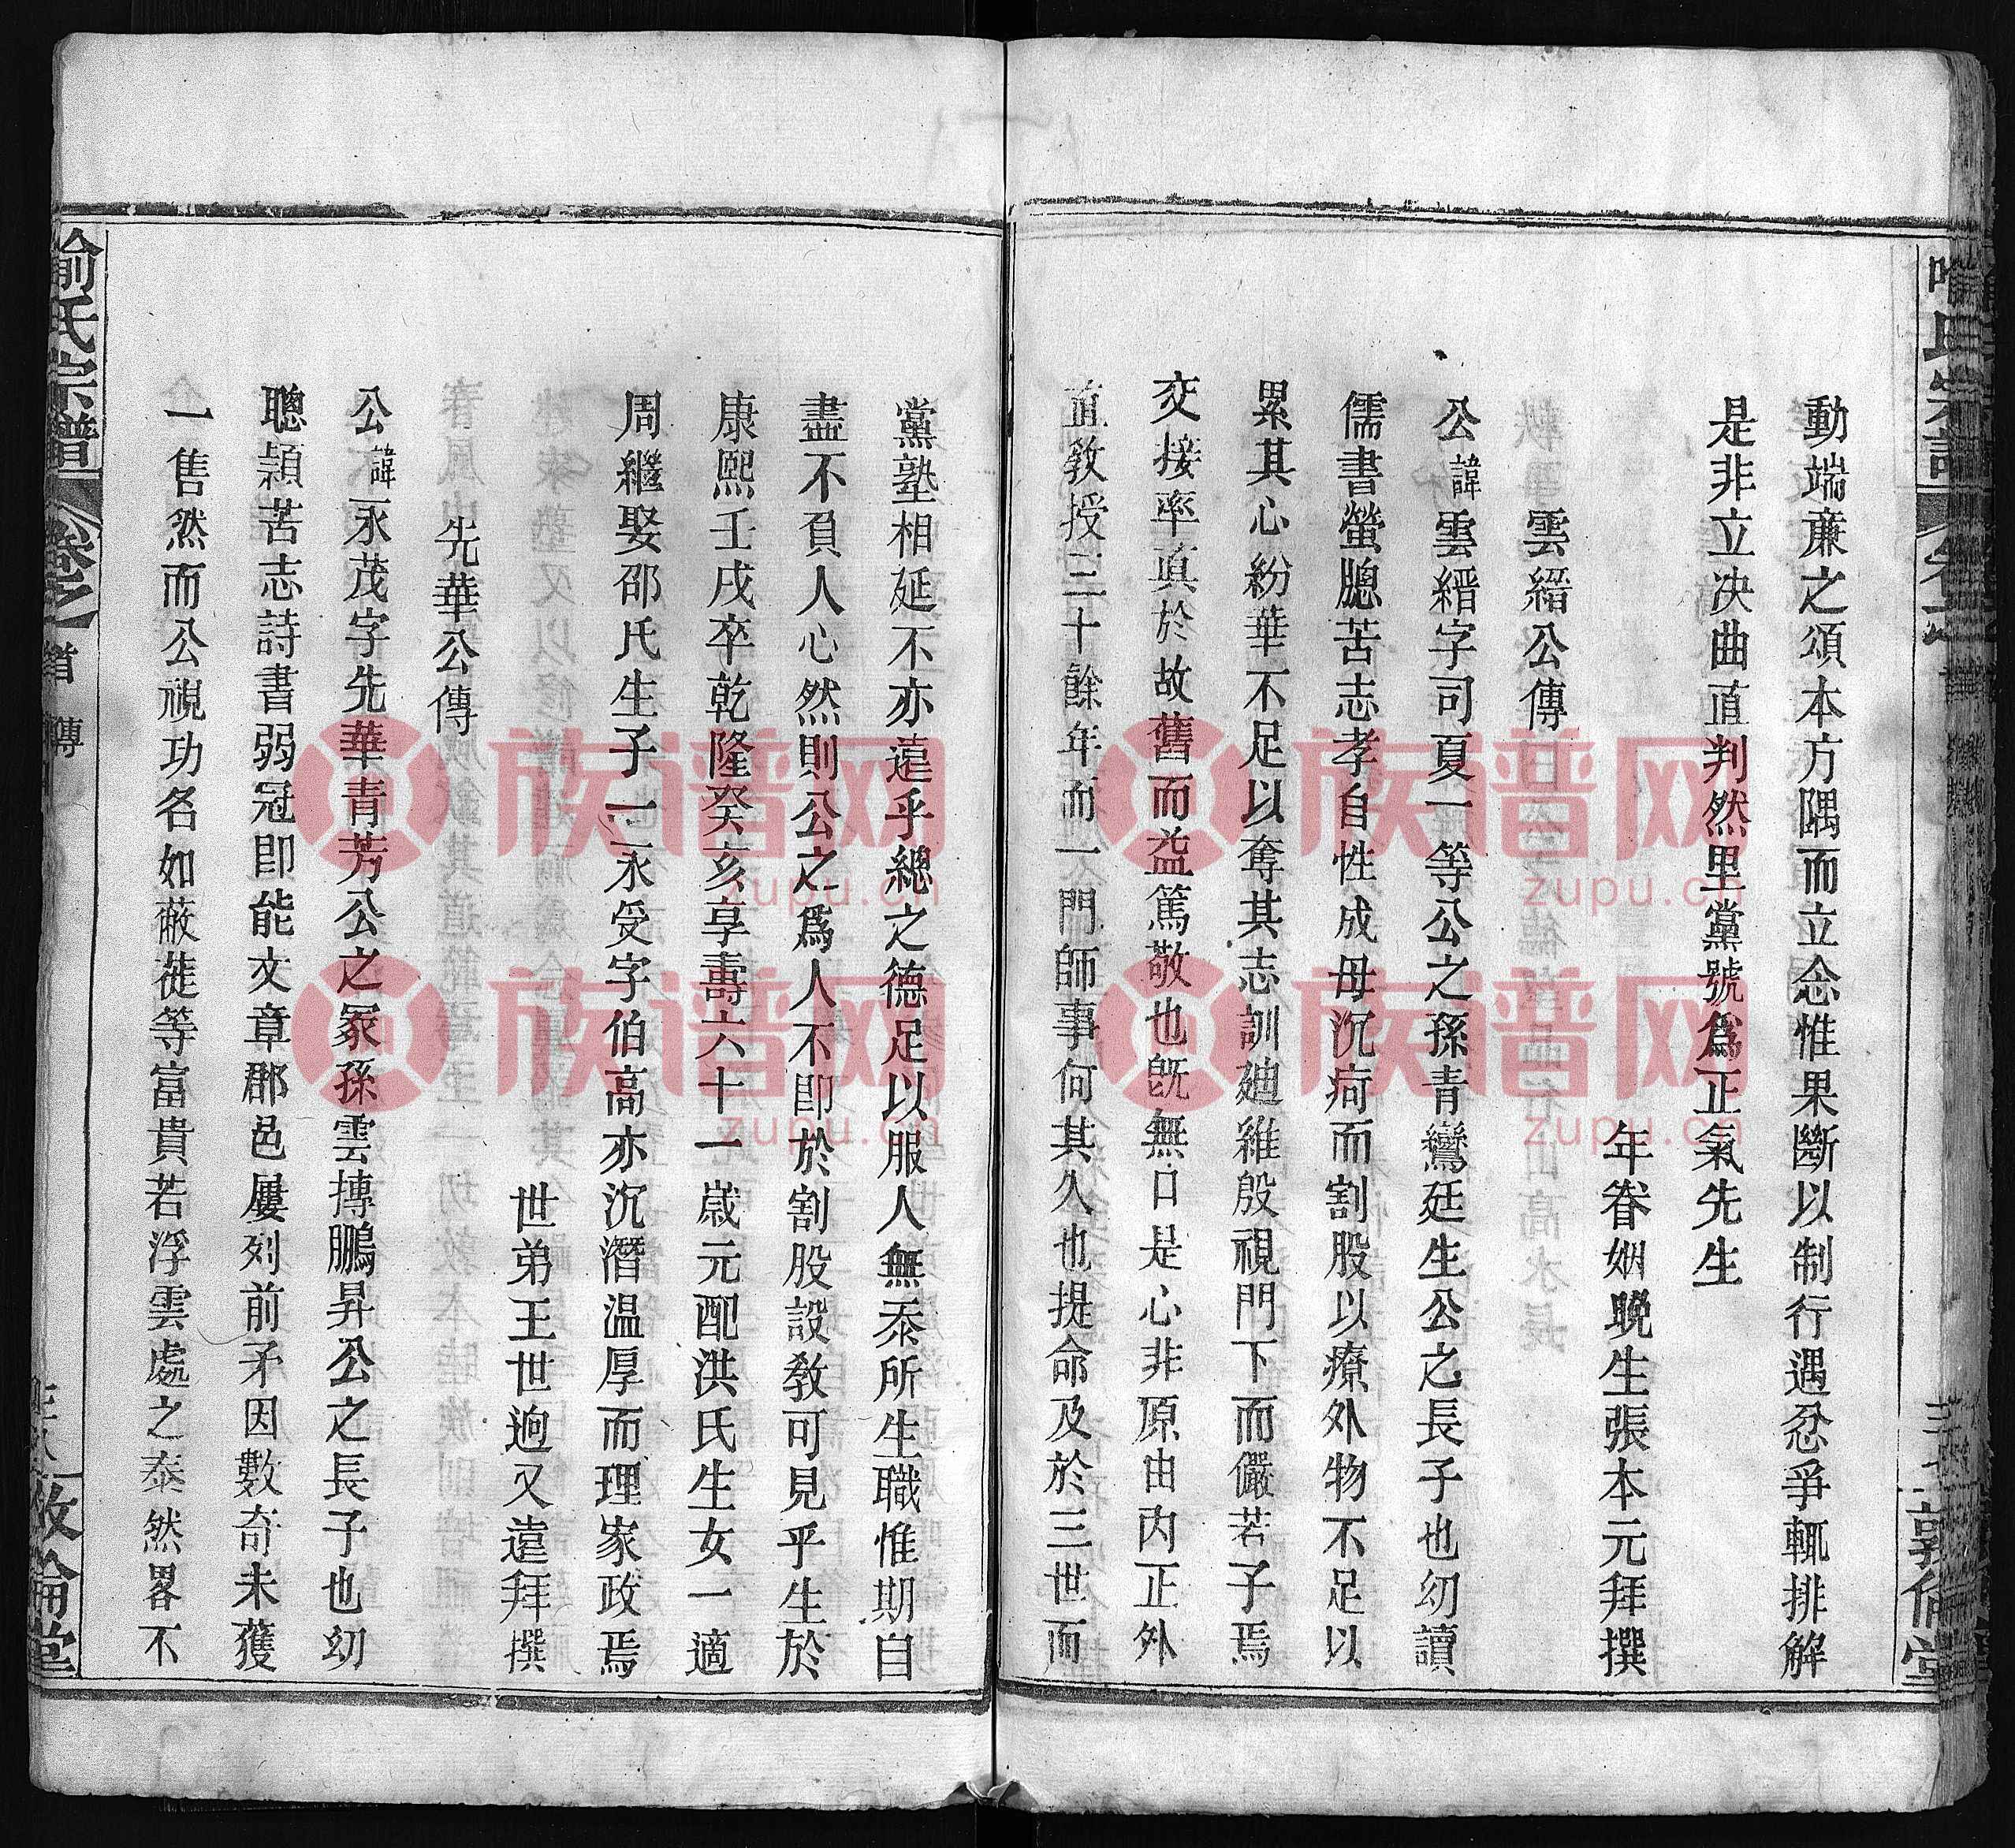 動端亷之頌本方隅而立念惟果斷以制行遇忿爭輒排解
是非立决曲直判然里黨號爲正氣先生
年眷姻晚生張本元拜撰
雲縉公傳
公諱雲縉字司夏一等公之孫青鸞廷生公之長子也幼讀
儒書螢䏓苦志孝自性成母沉疴而割股以療外物不足以
累其心紛華不足以奪其志訓廸維殷視門下而儼若子焉
交接率真於故舊而益篤敬也旣無口是心非原由内正外
直敎授二十餘年而一門師事何其久也提命及於三世而
黨塾相延不亦遠乎總之德足以服人無忝所生職惟期自
盡不負人心然則公之爲人不卽於割股設敎可見乎生於
康熙壬戌卒乾隆癸亥享壽六十一歲元配洪氏生女一適
周繼娶邵氏生子一永受字伯高亦沉潛温厚而理家政焉
世弟王世逈又遠拜撰
先華公傳
公諱永茂字先華青芳公之冢孫雲摶鵬昇公之長子也幼
聰頴苦志詩書弱冠卽能文章郡邑屢列前矛因數奇未獲
一售然而公視功名如蔽蓰等富貴若浮雲處之泰然畧不
喻氏宗譜
卷之
首
傳
敦倫堂
族谱网
zupu.cn